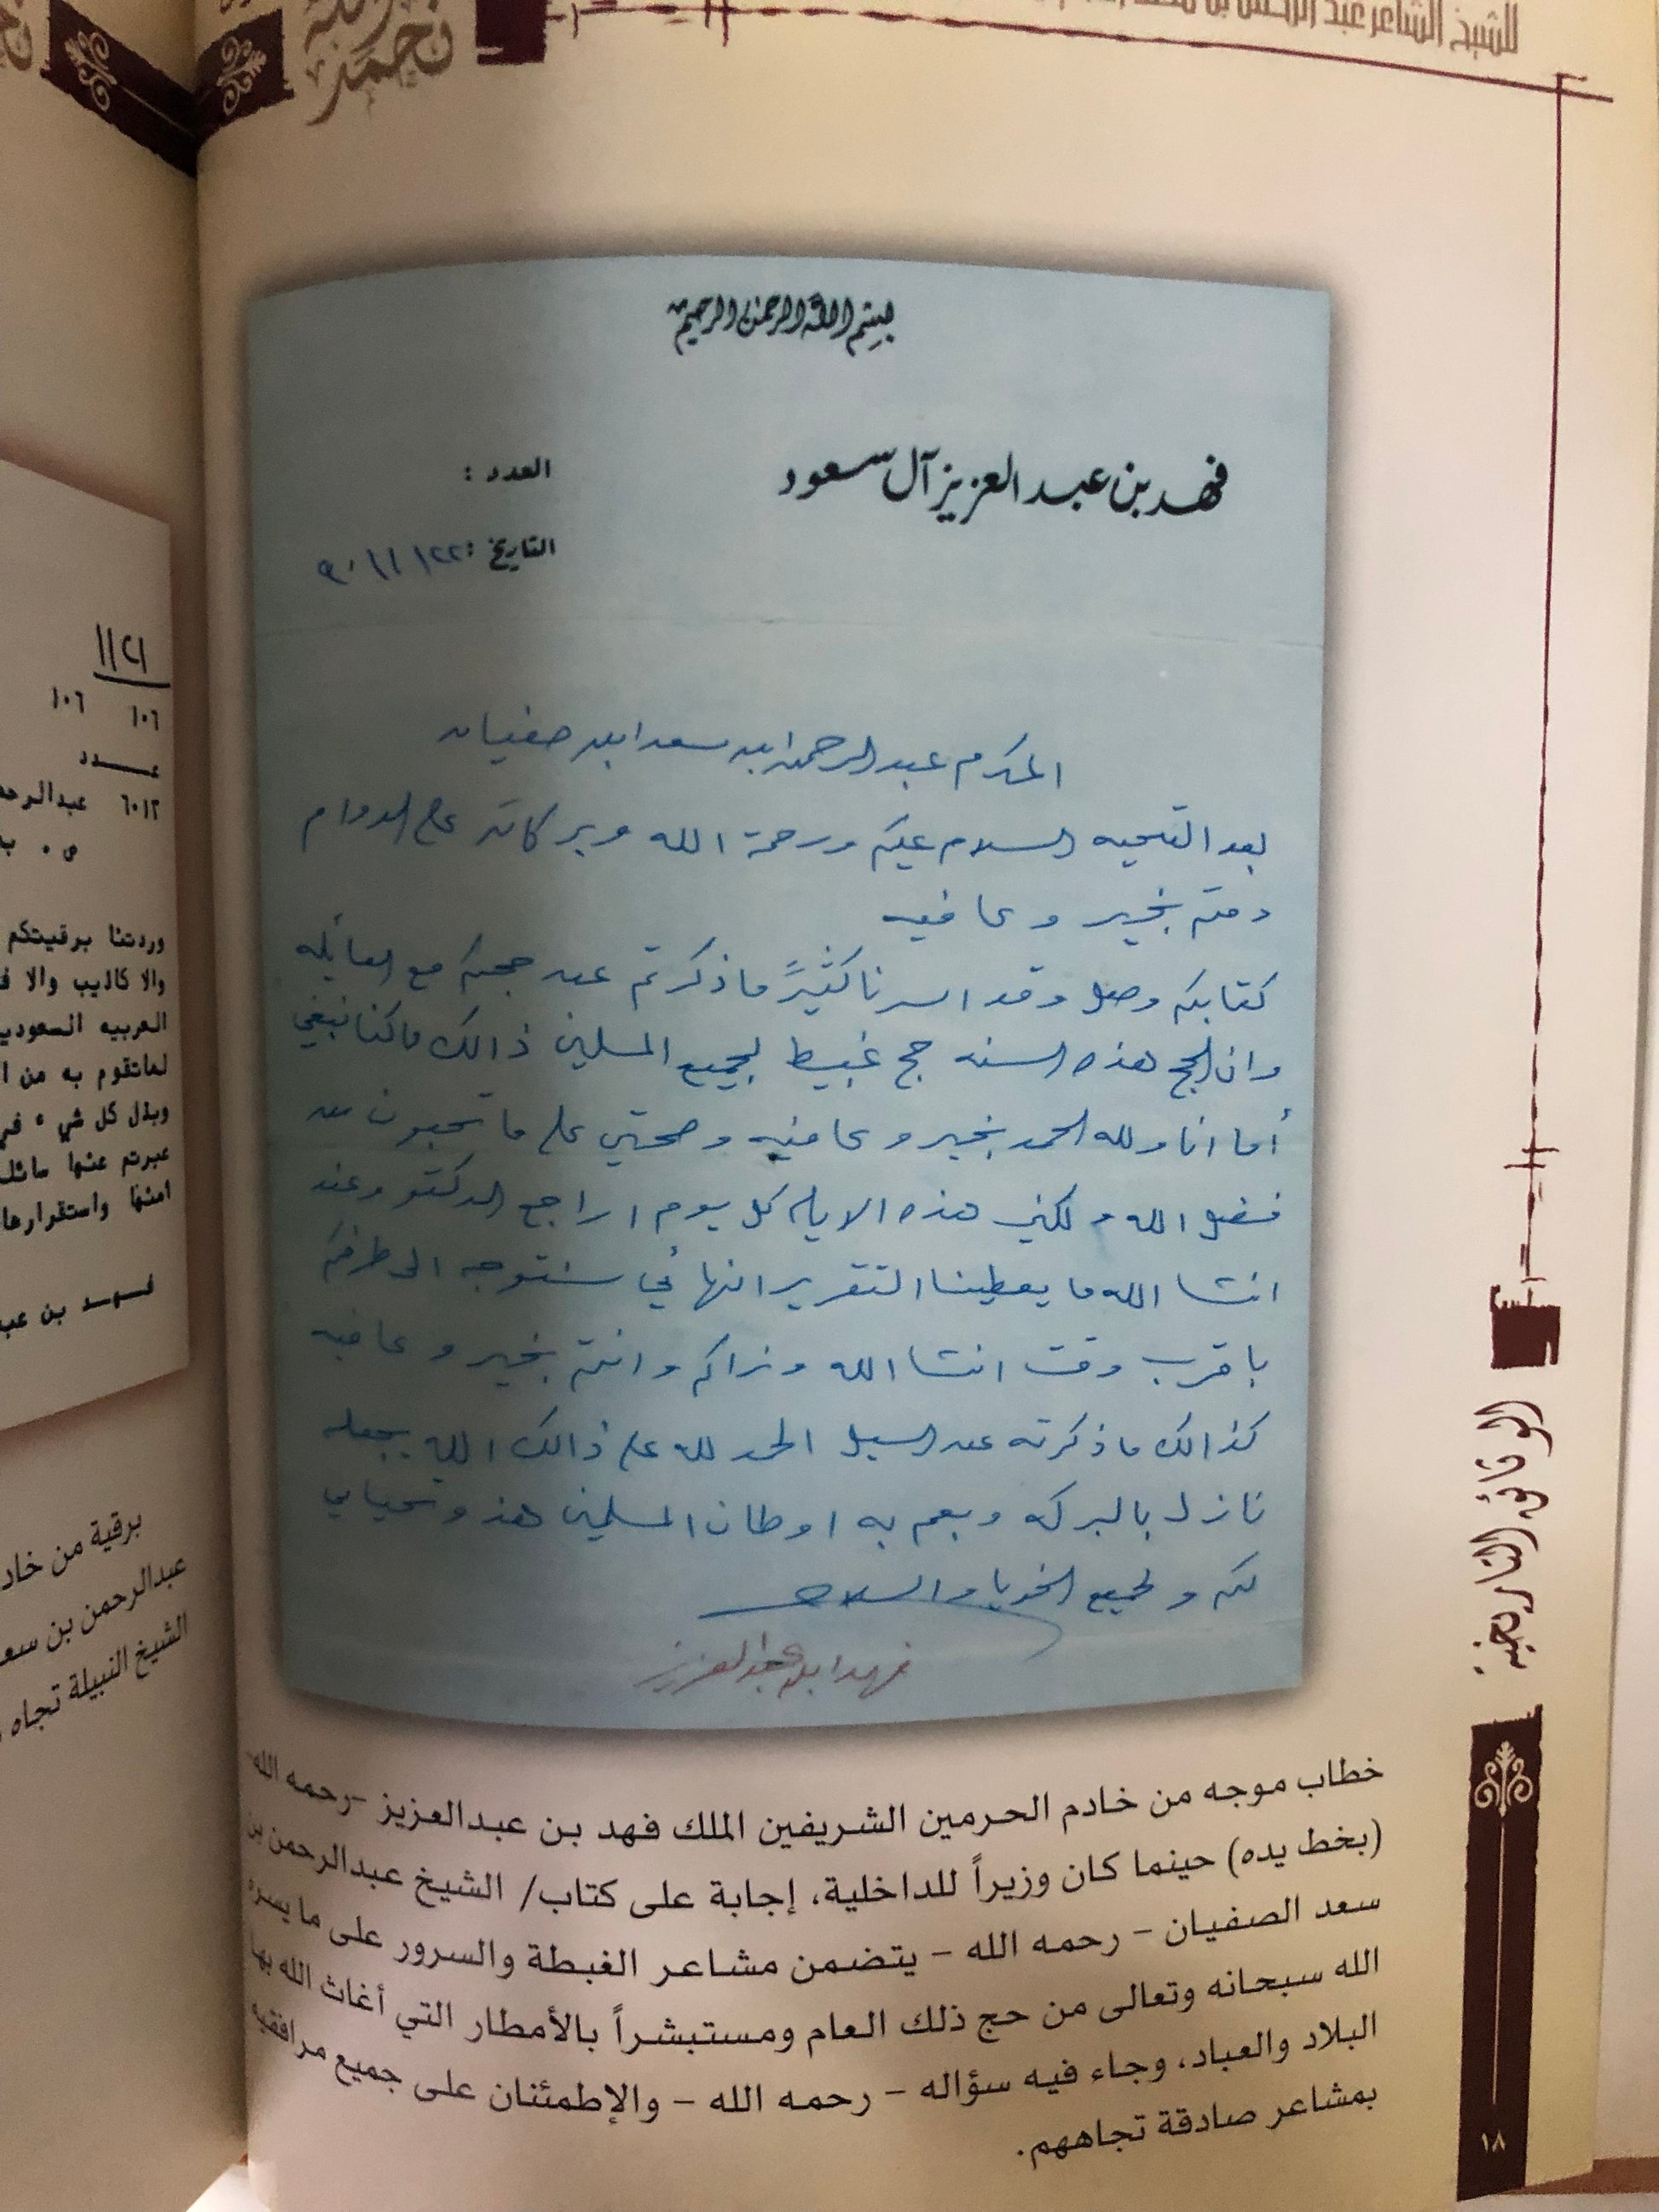 للشيخ الشاعر عبد الرحمن بن
بسم الله الرحمن الرحيم
فهد بن عبد العزيز آل سعود
العدد :
التاريخ : ٢٢/ ١/ ٩٠
المكرم عبد الرحمن ابن سعد ابن صفيان
بعد التحيه السلام عليكم ورحمة الله وبركاته على الدوام
دمتم بخير وعافيه
كتابكم وصل وقد اسرنا كثيراً ما ذكرتم عن حجكم مع العائله
وان الحج هذه السنه حج غبيط لجميع المسلمين ذالك ما كنا نبغي
أما انا ولله الحمد بخير وعافيه وصحتي على ما تحبون من
فضل الله ولكني هذه الايام كل يوم اراجع الدكتو وعند
انشا الله ما يعطينا التقرير انهائي سنتوجه الى طرفكم
باقرب وقت انشا الله ونراكم وانتم بخير وعافيه
كذالك ما ذكرته عن السيل الحمد لله على ذالك الله يجعله
نازل بالبركه ويعم به اوطان المسلمين هذ وتحياتي
لكم ولجميع الخويا والسلام
فهد ابن عبد العزيز
خطاب موجه من خادم الحرمين الشريفين الملك فهد بن عبدالعزيز -رحمه الله-
(بخط يده) حينما كان وزيراً للداخلية، إجابة على كتاب/ الشيخ عبدالرحمن بن
سعد الصفيان - رحمه الله - يتضمن مشاعر الغبطة والسرور على ما يسره
الله سبحانه وتعالى من حج ذلك العام ومستبشراً بالأمطار التي أغاث الله بها
البلاد والعباد، وجاء فيه سؤاله - رحمه الله - والإطمئنان على جميع مرافقيه
بمشاعر صادقة تجاههم.
الوثائق التاريخية
١٨
١١٢١
١٠٦ ١٠٦
عدد
٦٠١٢ عبدالرحم
وردتنا برقيتكم
والا كاذيب والا
العربيه السعودي
لماتقوم به من
وبذل كل شيء في
عبرتم عنها سائل
امنها واستقرارها
فهد بن عب
برقية من خاد
عبدالرحمن بن سع
الشيخ النبيلة تجاه